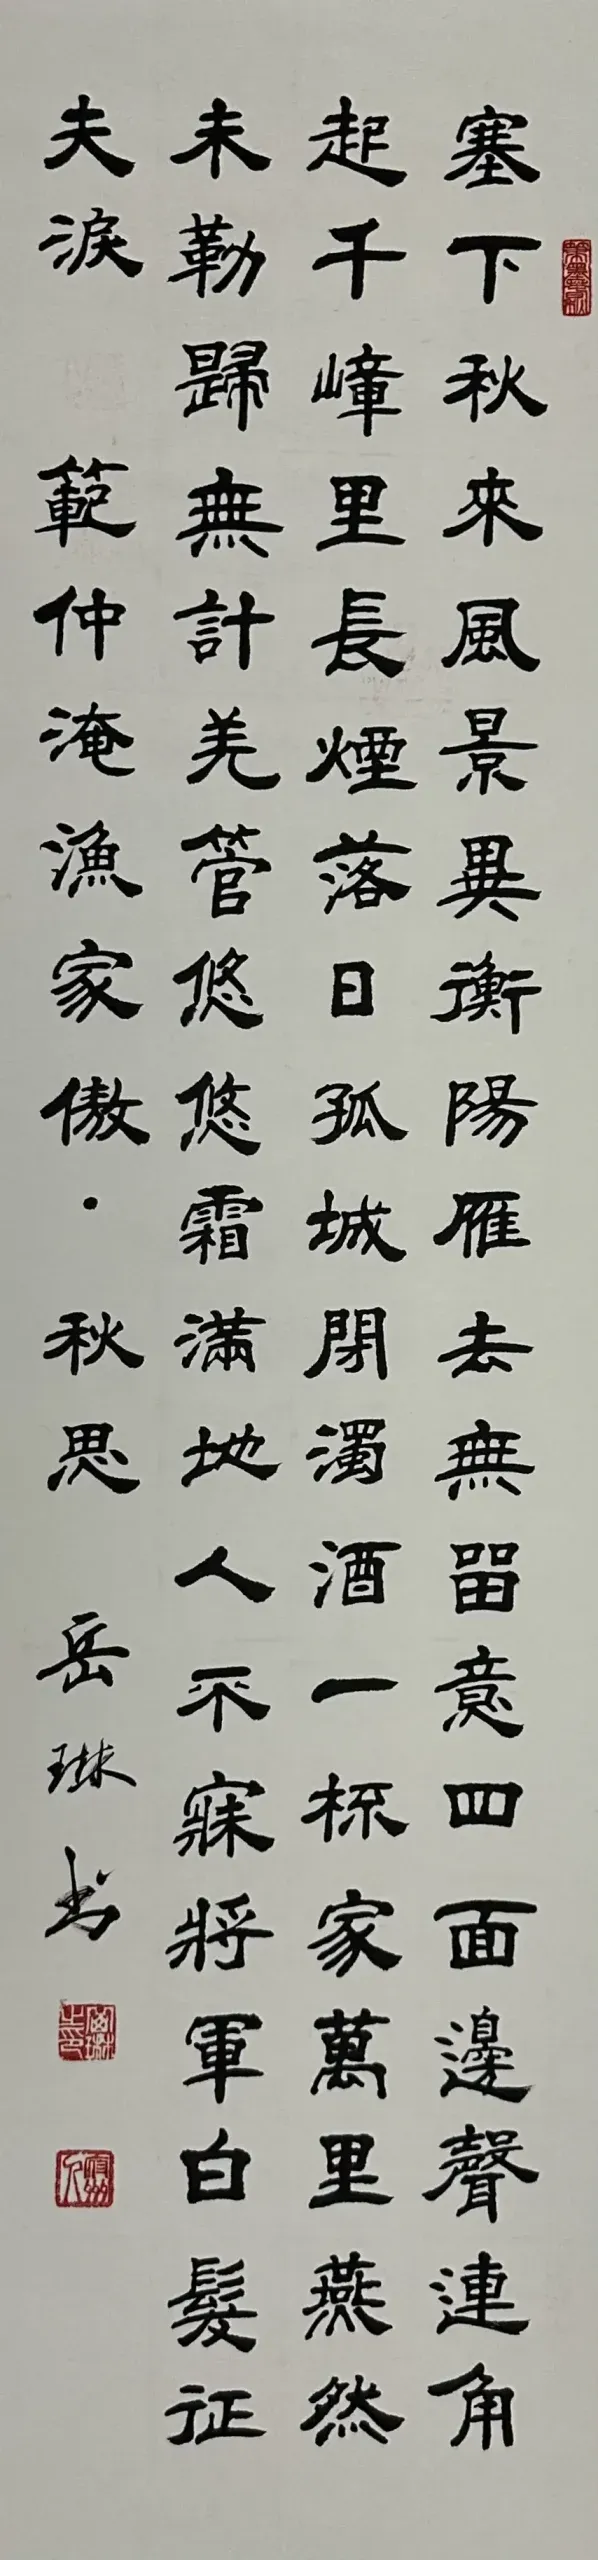 塞下秋來風景異衡陽雁去無留意四面邊聲連角
起千嶂里長煙落日孤城閉濁酒一杯家萬里燕然
未勒歸無計羌管悠悠霜滿地人不寐將軍白髮征
夫淚 範仲淹漁家傲·秋思 岳琳书